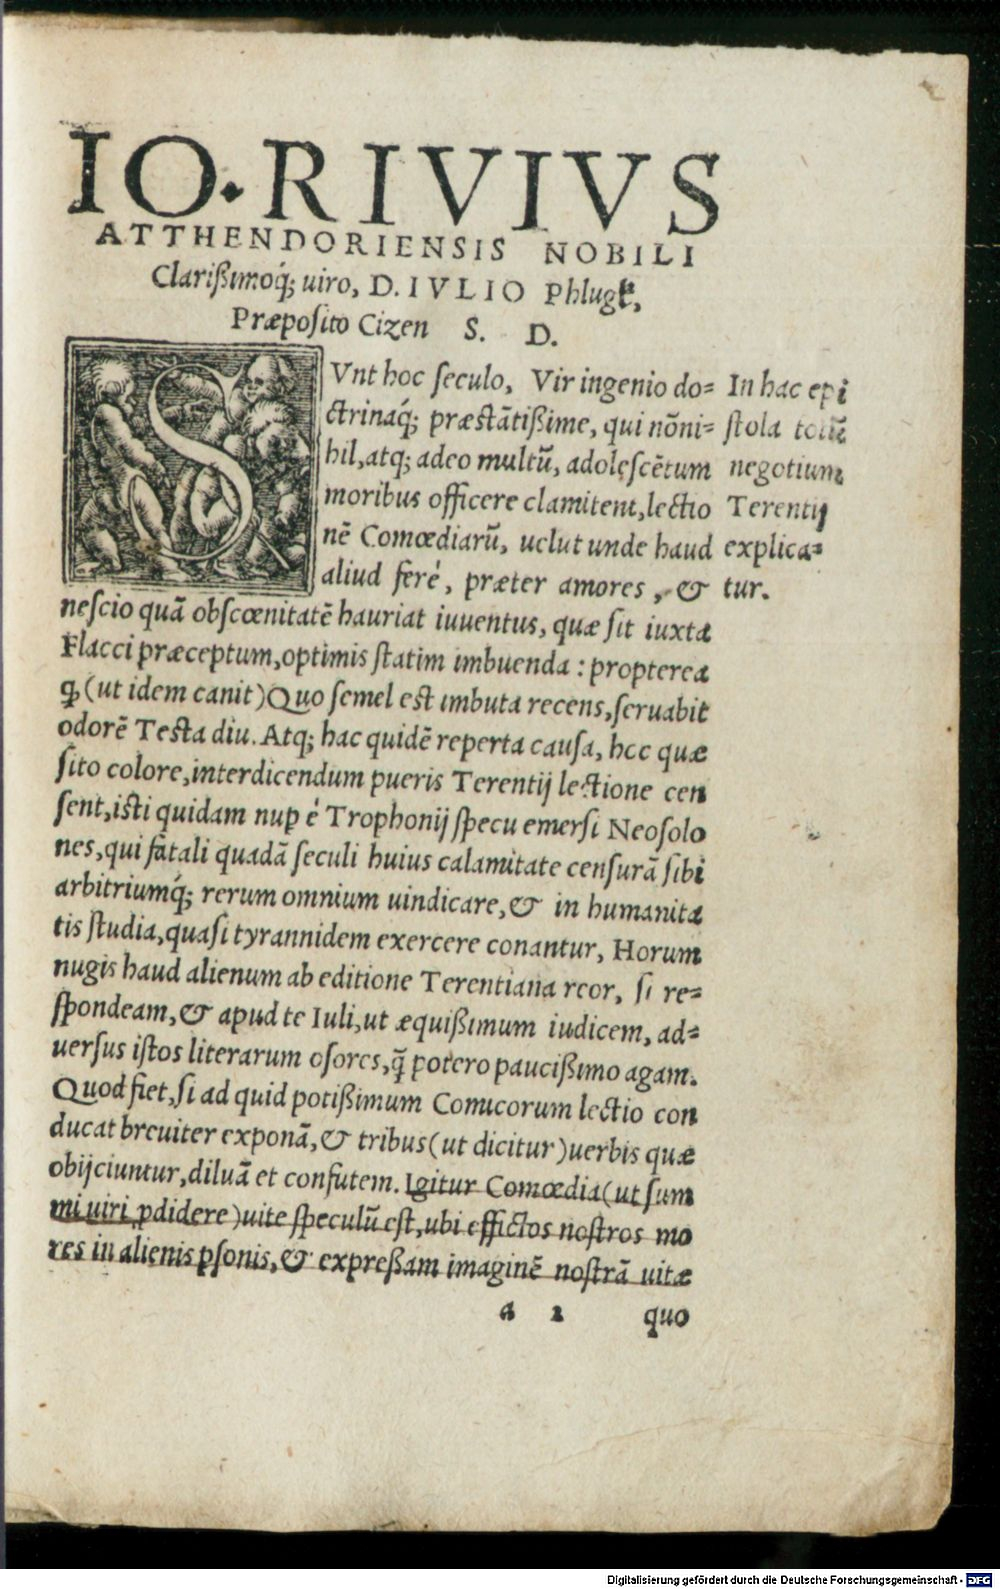 IO. RIVIVS
ATTHENDORIENSIS NOBILI
Clarißimoq́; uiro, D. IVLIO Phlugk,
Præposito Cizen S. D.
SVnt hoc seculo, Vir ingenio do=
ctrinaq́; præstãtißime, qui nõni=
hil, atq; adeo multũ, adolescẽtum
moribus officere clamitent, lectio
nẽ Comœdiarũ, uelut unde haud
aliud ferè, præter amores, &
nescio quã obscœnitatẽ hauriat iuuentus, quæ sit iuxta
Flacci præceptum, optimis statim imbuenda: propterea
ꝙ (ut idem canit) Quo semel est imbuta recens, seruabit
odorẽ Testa diu. Atq; hac quidẽ reperta causa, hoc quæ
sito colore, interdicendum pueris Terentij lectione cen
sent, isti quidam nuꝑ è Trophonij specu emersi Neosolo
nes, qui fatali quadã seculi huius calamitate censurã sibi
arbitriumq́; rerum omnium uindicare, & in humanita
tis studia, quasi tyrannidem exercere conantur, Horum
nugis haud alienum ab editione Terentiana reor, si re=
spondeam, & apud te Iuli, ut æquißimum iudicem, ad=
uersus istos literarum osores, q̃ potero paucißimo agam.
Quod fiet, si ad quid potißimum Comicorum lectio con
ducat breuiter exponã, & tribus (ut dicitur) uerbis quæ
obijciuntur, diluã et confutem. Igitur Comœdia (ut sum
mi uiri ꝓdidere) uite speculũ est, ubi effictos nostros mo
res in alienis ꝑsonis, & expreßam imaginẽ nostrã uitæ
a 2 quo
In hac epi
stola totũ
negotium
Terentij
explica=
tur.
Digitalisierung gefördert durch die Deutsche Forschungsgemeinschaft - DFG